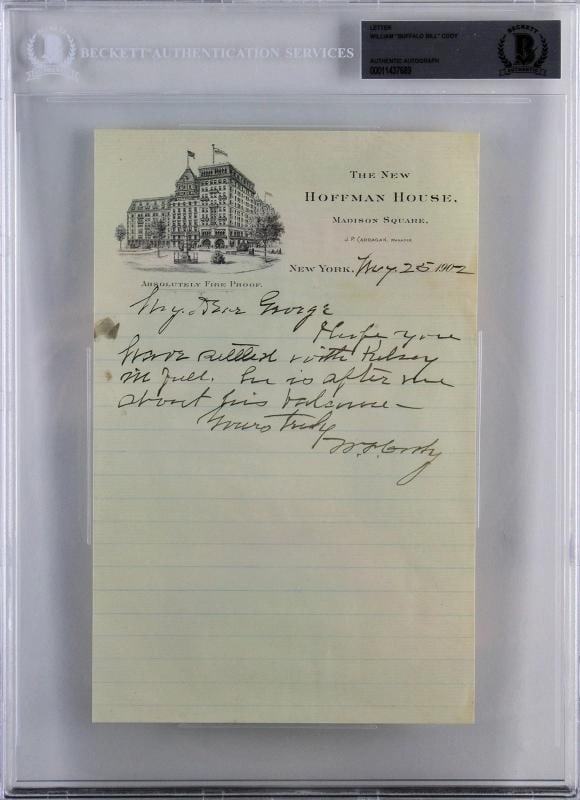 BECKETT AUTHENTICATION SERVICES
LETTER
WILLIAM "BUFFALO BILL" CODY
AUTHENTIC AUTOGRAPH
00011437689
BECKETT
THE NEW
HOFFMAN HOUSE,
MADISON SQUARE,
J. P. CADDAGAN, MANAGER
NEW YORK, 25 1902
ABSOLUTELY FIRE PROOF.
My Dear George
Hope you
have settled with Kelsey
in full. he is after me
about his balance—
Yours truly
W. F. Cody